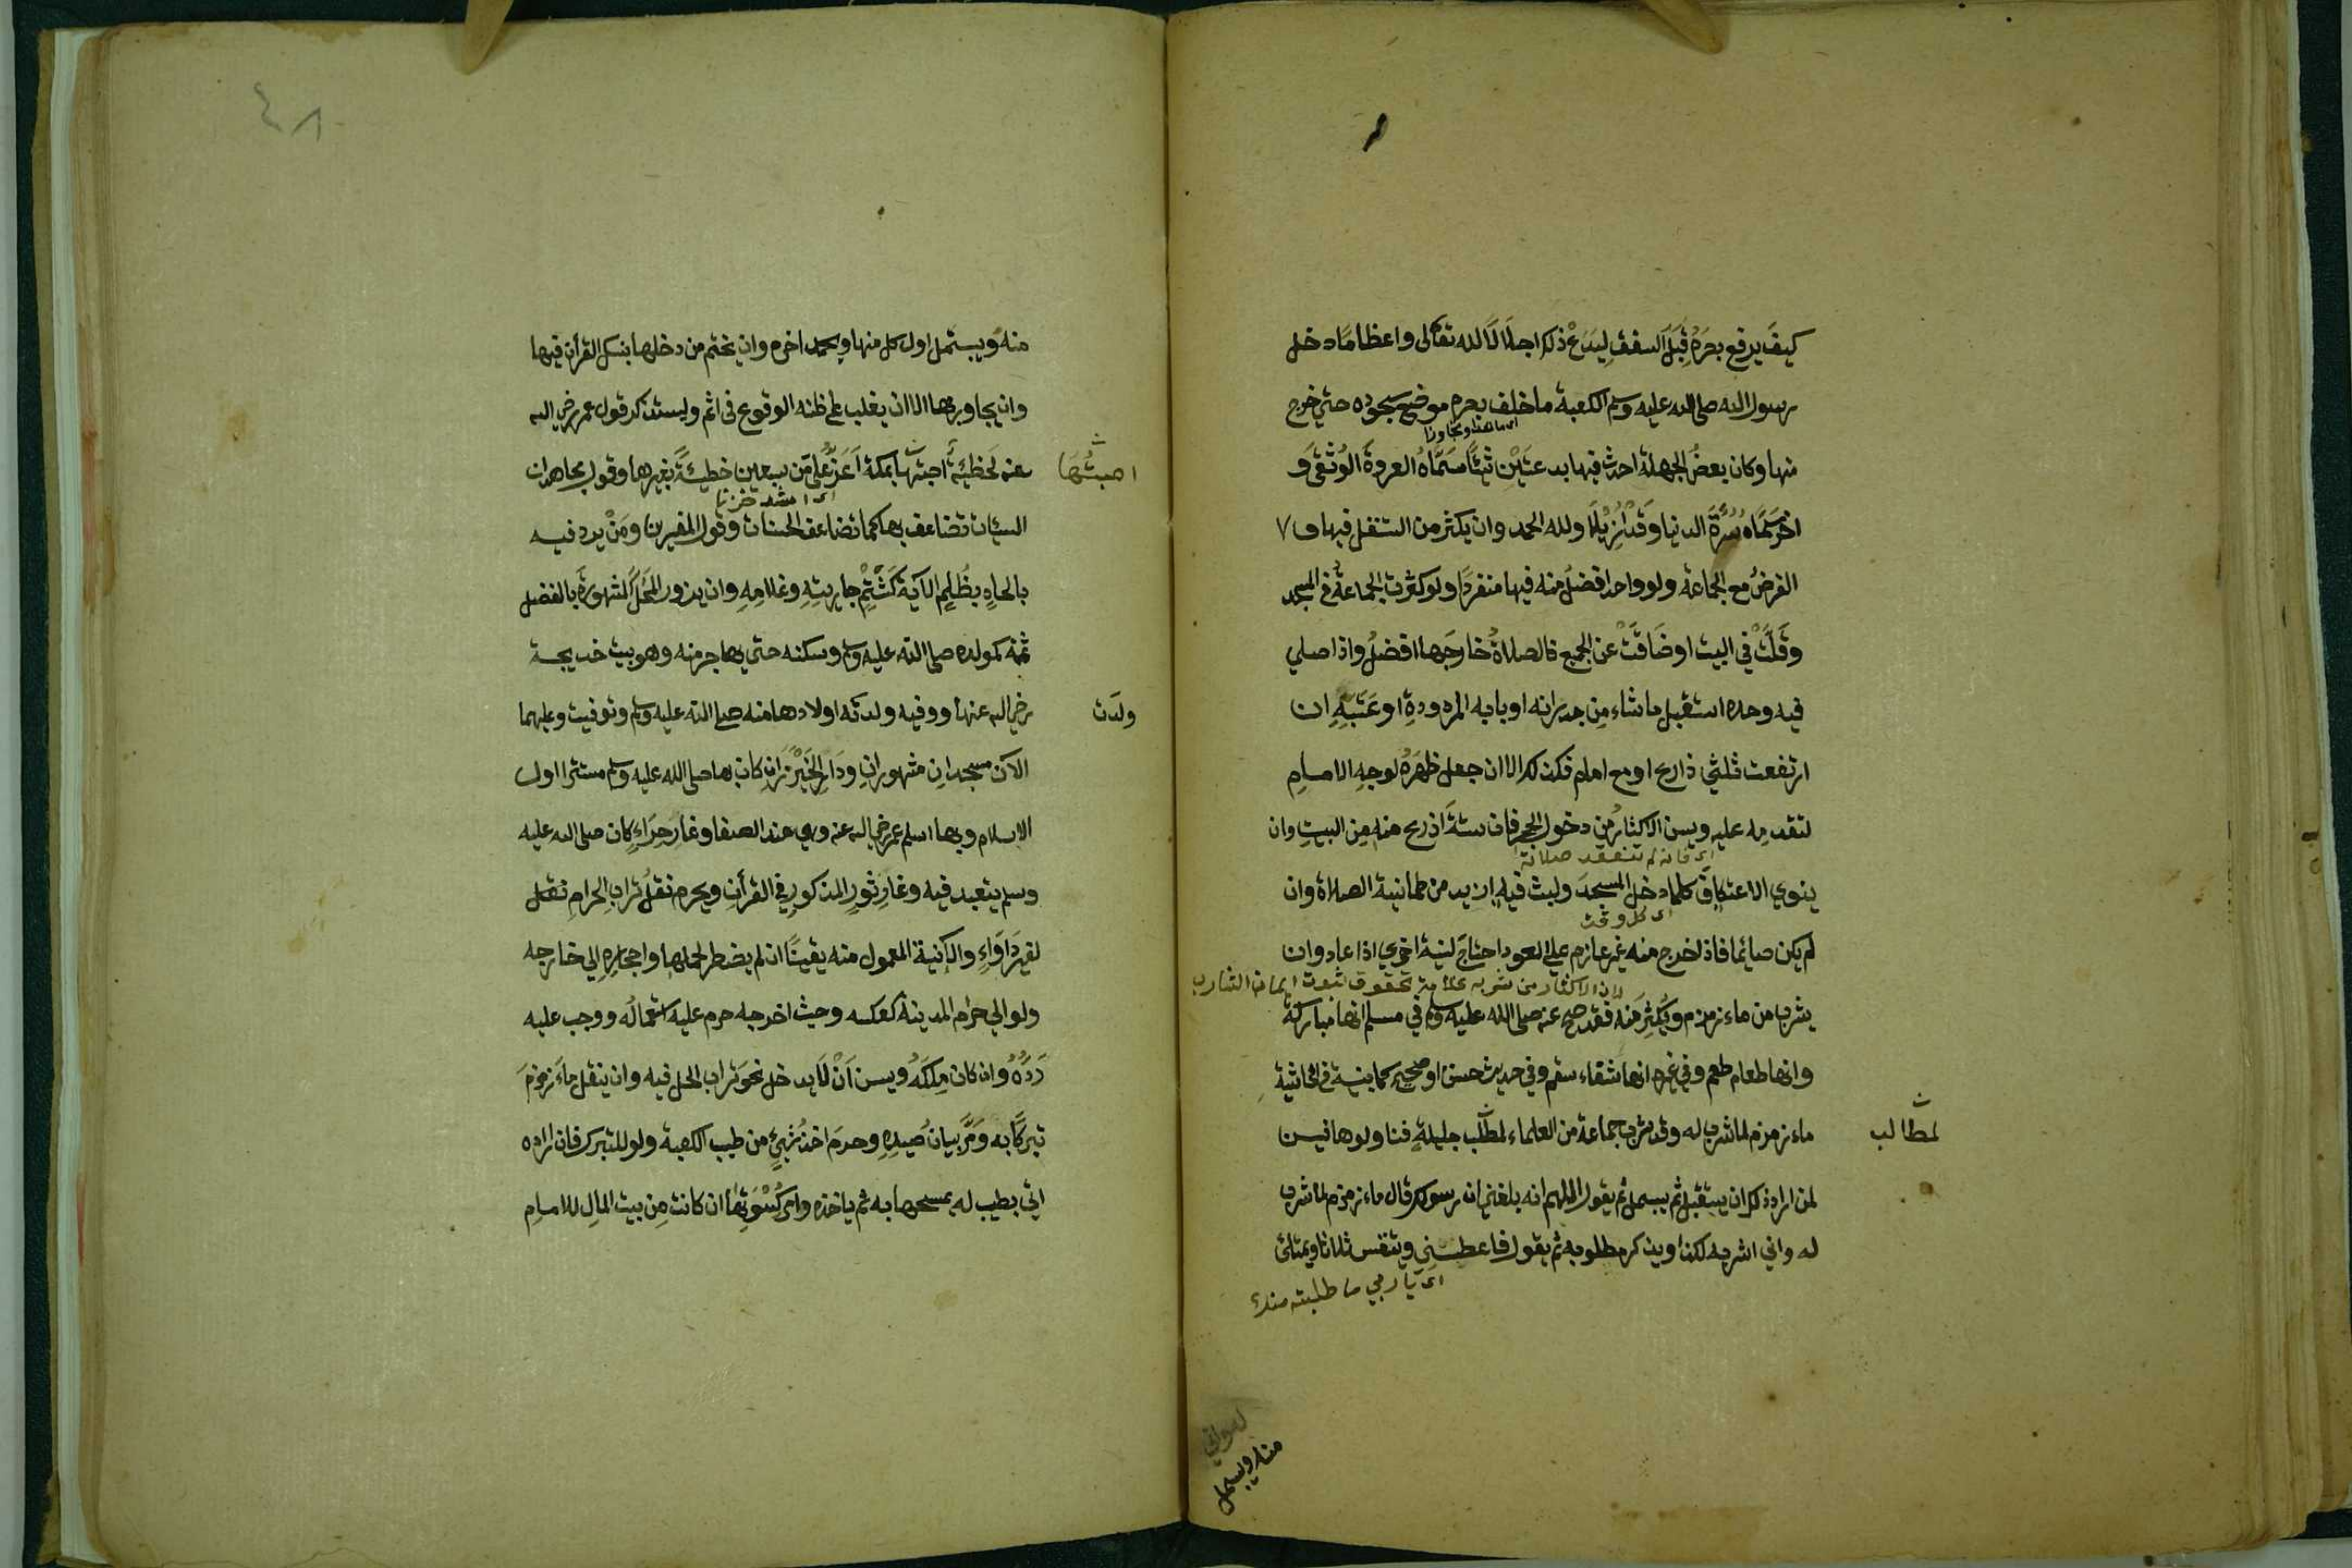 كيفَ يرفع بصَرَهُ قِبَلَ السقفِ لِيَدَعْ ذلك اجلالًا لله تعالى واعظامًا دخل
رسول الله صلى الله عليه وسلم الكعبة ما خلف بصره موضع سجوده حتى خرج
اى ما هذا وتجاوزا
منها وكان بعضُ الجهلة احدث فيها بدعتَيْنِ شيئًا سمَّاهُ العروةَ الوُثْقَى وَ
اخرَ سَمَّاه سُرَّةَ الدنيا وَقَدْ اُزِيْلَا ولله الحمد وان يكثر من التنفل فيها
الفرضُ مع الجماعة ولو واحدا افضلُ منه فيها منفردًا ولو كثرت الجماعةُ في المسجد
وقَلَّتْ في البيت او ضَاقَتْ عن الجميع فالصلاةُ خارجَها افضلُ واذا صلي
فيه وحده استقبل ما شاء مِن جدرانه او بابه المردودةِ او عَتَبَتِهِ ان
ارتفعت ثلثي ذارع او مع امام فكذلك الا ان جعل ظهرَهُ لوجهِ الامامِ
لتقدمه عليه ويسن الاكثارُ مِن دخول الحجر فان ستةَ اذرع منه مِن البيتِ وان
اى فانه لم تنعقد صلاته
ينوي الاعتكافَ كلما دخل المسجدَ ولبث فيه ازيد من طمانينة الصلاة وان
اى كل وقت
لم يكن صائما فاذا خرج منه غير عازم على العود احتاجَ لنية اخري اذا عاد وان
لان الاكثار من شربه علامة تحقق ثبوت ايمان الشارب
يشرب من ماء زمزم ويُكثِرَ منه فقد صح عنه صلى الله عليه وسلم في مسلم انها مباركة
وانها طعام طعم وفي غيره انها شفاء سقم وفي حديث حسن او صحيح كما بينته في الحاشيةِ
ماء زمزم لما شرب له وقد شرب جماعة من العلماء لمطالب جليلةٍ فنالوها فيسن
لمطالب
لمن اراد ذلك ان يستقبل ثم يبسمل ثم يقول اللهم انه بلغني ان رسولك قال ماء زمزم لما شرب
له واني اشربه لكذا ويذكر مطلوبه ثم يقول فاعطـنى ويتنفس ثلاثا ويمتلئ
اى يا ربي ما طلبته منك
منه ويبسمل
٤٨
منه ويبسمل اول كل منها ويحمد اخره وان يختم من دخلها بنسك القرآن فيها
وان يجاور بها الا ان يغلب على ظنه الوقوع في اثم وليستذكر قول عمر رضي الله
عنه لخطيئة اصبتها بمكة اَعَزُّ علىَّ مِن سبعين خطيئةً بغيرها وقول مجاهد ان
اصبتُهَا
اى اشد حزنا
السيئات تضاعف بها كما تضاعف الحسنات وقول المفسرين ومَنْ يرد فيه
بالحادٍ بظُلمٍ الآية كَشَتْمِ جاريتِهِ وغلامِهِ وان يزور المَحَالَّ المشهورةَ بالفضل
ثمة كمولده صلى الله عليه وسلم وسكنه حتى هاجر منه وهو بيت خديجة
رضي الله عنها وفيه ولدته اولادها منه صلى الله عليه وسلم وتوفيت وعليهما
ولدت
الآن مسجدانِ مشهورانِ ودَارِ الخَيْزَرانِ كان بها صلى الله عليه وسلم مستترا اول
الاسلام وبها اسلم عمر رضي الله عنه وهي عند الصفا وغارِ حِرَاءٍ كان صلى الله عليه
وسلم يتعبد فيه وغارِ ثورٍ المذكورِ في القرآنِ ويحرم نقلُ ترابِ الحرامِ نقل
لغير دَاوَاءٍ والآنية المعمول منه يقينًا ان لم يضطر لحملها واحجارِهِ الي خارجه
ولو الي حرام المدينة كعكسه وحيث اخرجه حرم عليه استعمالُه ووجب عليه
رَدُّهُ وان كان مِلكَهُ ويسن اَنْ لَا يدخل نحوَ تراب الحل فيه وان ينقل ماءَ زمزمَ
تبركًا به ومَرَّ بيانُ صيدِهِ وحرمَ اخذُ شيئٍ من طيب الكعبة ولو للتبرك فان اراده
اتي بطيب له يمسحها به ثم ياخذه وامرُ كُسْوَتِهَا ان كانت مِن بيت المالِ للامامِ